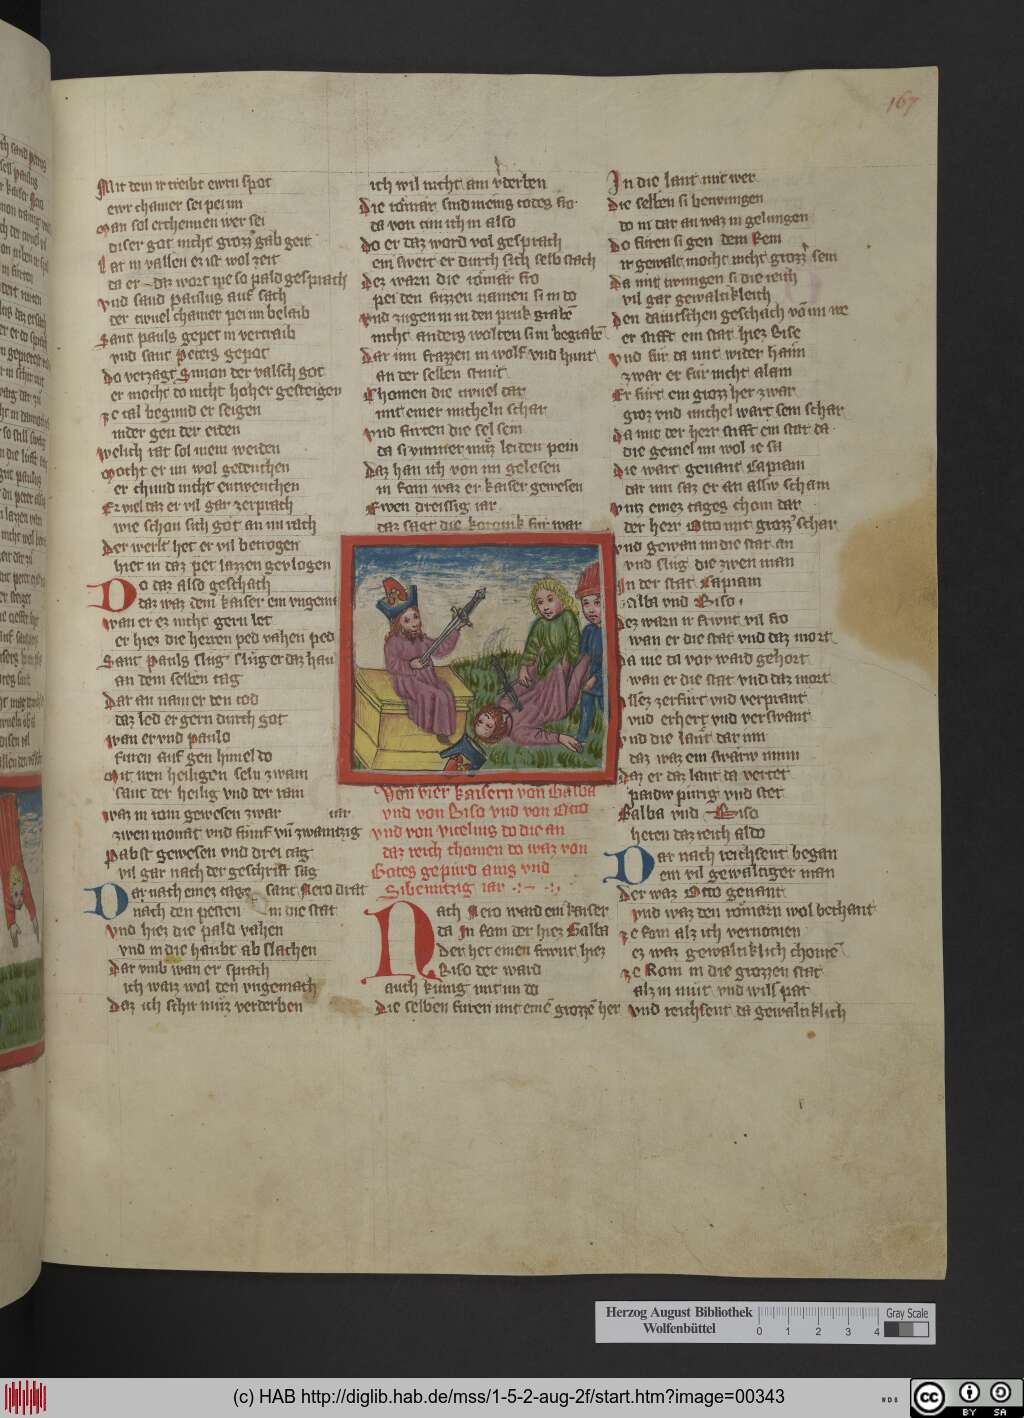 167
Mit dem ir treibt ewrn spot
ewr chamer sei pei im
Man sol erchennen wer sei
diser got nicht grozz gab geit
Lat in vallen ez ist wol zeit
da er daz wort nie so pald gesprach
vnd sand paulus auf sach
der tiuuel chamer pei im belaib
Sant pauls gepet in vertraib
vnd sant Peters gepot
Do verzagt Simon der valsch got
er mocht do nicht hoher gesteigen
ze tal begund er seigen
nider gen der erden
welich rat sol mein werden
Mocht er im wol gedenchen
er chund nicht entwenchen
Er viel daz er vil gar zerprach
wie schon sich got an im rach
Der werlt het er vil betrogen
hier in daz per lazzen gevlogen
Do daz also geschach
daz waz dem kaiser ein vngemach
wan er ez nicht gern let
er hiez die herren ped vahen ped
Sant Pauls slug slug er daz haupt
an dem selben tag
Dar an nam er den tod
daz led er gern durch got
wan er vnd paulo
furen auf gen himel do
Mit den heiligen seln zwain
sant der heilig vnd der rain
waz in rom gewesen zwar iar
zwen monat vnd fumf vn zwaintzig
Pabst gewesen vnd drei tag
vil gar nach der geschrift sag
Dar nach einez tages sant Nero drat
nach den pesten in die stat
vnd hiez die pald vahen
vnd in die haubt ab slachen
Dar vmb wan er sprach
ich waiz wol den vngemach
Daz ich schir muz verderben
ich wil nicht ain verderben
Die romar sind meins todes fro
da von tun ich in also
Do er daz word vol gesprach
ein swert er durch sich selb stach
Dez warn die romar fro
pei den fuzzen namen si in do
vnd zugen in in den pruk graben
nicht anders wolten si in begraben
Dar inn frazzen in wolf vnd hunt
an der selben stunt
Chomen die tiuuel dar
mit einer micheln schar
vnd furten die sel sein
da si vmmer muz leiden pein
Daz han ich von im gelesen
in Rom waz er kaiser gewesen
Ewen dreissig iar
daz sagt die koronik fur war
Von vier kaisern von Galba
vnd von Piso vnd von Otto
vnd von vitelius do die an
daz reich chomen do waz von
Gotes gepurd ains vnd
Sibentzig iar
Nach Nero ward ein kaiser
da In Rom der hiez Galba
Der het einen friunt hiez
Piso der ward
auch kunig mit im do
Die selben furen mit eine grozze her
In die lant mit wer
Die selben si betwungen
do in dar an waz in gelungen
Do furen si gen dem Rem
ir gewalt mocht nicht grozzer sein
Da mit twungen si die reich
vil gar gewaltikleich
Den dautschen geschach von im we
er stift ein stat hiez Pise
vnd fur da mit wider haim
zwar er fur nicht alain
Er furt ein grozz her zwar
groz vnd michel wart sein schar
Da mit der herr stift ein stat da
die geuiel im wol ie sa
Die wart genant Lapiam
dar inn saz er an allw scham
vntz einez tages chom dar
der herr Otto mit grozzer schar
vnd gewan im die stat an
vnd slug die zwen man
In der stat Lapiam
Galba vnd Piso
Dez warn ir friwnt vil fro
wan er die stat vnd daz mort
Da nie da vor ward gehort
wan er die stat vnd daz mort
Allez zerfurt vnd verprant
vnd erhert vnd verswant
vnd die laut dar inn
daz waz ein swarw minn
Daz er daz lant da verter
padw purig vnd stet
Galba vnd Piso
heten daz reich aldo
Dar nach reichsent began
ein vil gewaltiger man
Der waz Otto genant
vnd waz den romarn wol bechant
ze Rom alz ich vernomen
ez waz gewaltiklich chomen
ze Rom in die grozzen stat
alz in mut vnd will pat
vnd reichsent da gewaltiklich
Herzog August Bibliothek
Wolfenbüttel
0 1 2 3 4
Gray Scale
(c) HAB http://diglib.hab.de/mss/1-5-2-aug-2f/start.htm?image=00343
cc BY SA